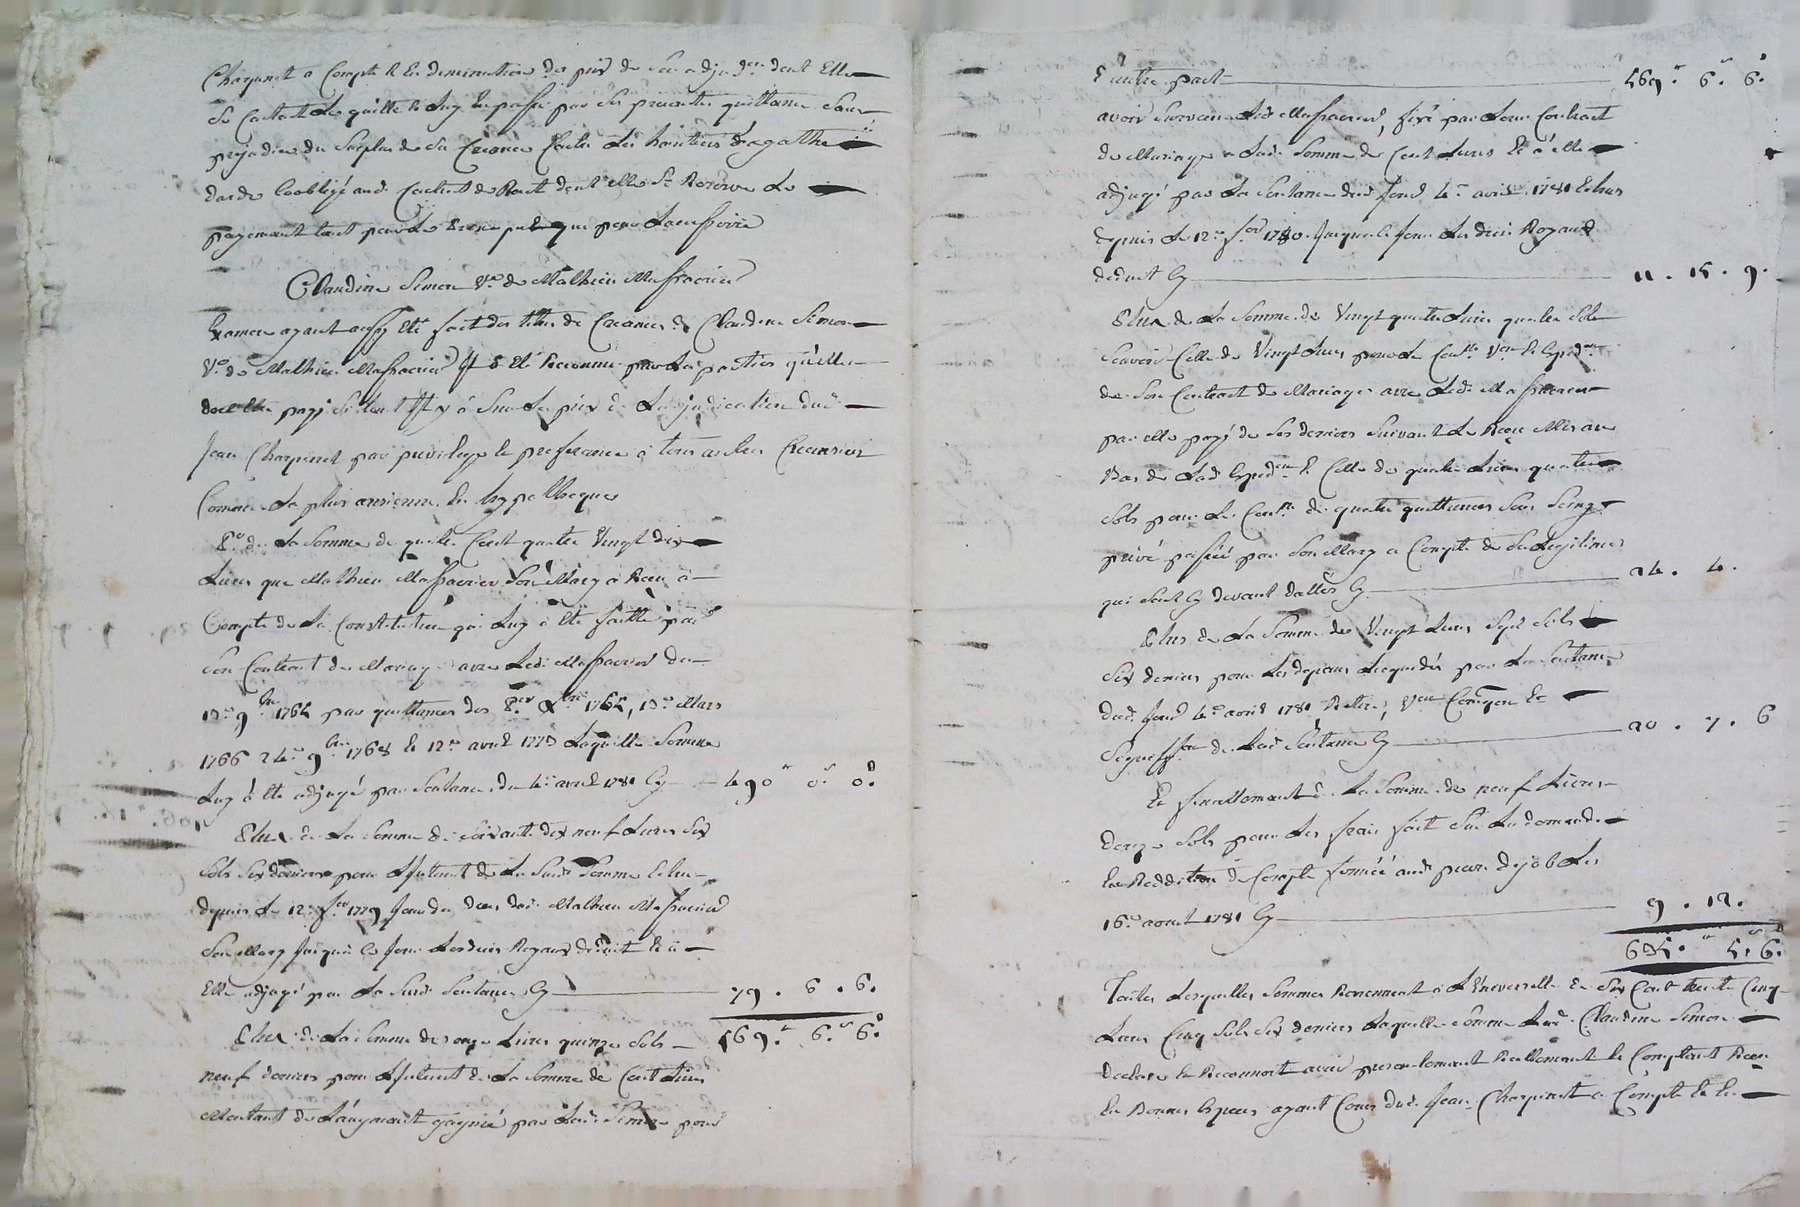 Charpenet a Compte & En deminution du prix de Son adjud.on dont Elle
Se Contente Le quitte & Luy En passe par Ses presentes quittance Sans
prejudice du Surplus de Sa Creance Contre Les heritiers d'agathe
payement tant pour Le principal que pour Laccessoire
Claudine Simon V.e de Mathieu Massacrier
Examen ayant aussy Eté fait des titres de Creances de Claudine Simon
V.e de Mathieu Massacrier Il a Eté Reconnu par Les parties qu'elle
doit Etre payé Sil en Est y a Sur Le prix de Ladjudication dud.
Jean Charpenet par privilege & preferance à tous autres Creanciers
Comme La plus ancienne En hypotheque
P.o de La Somme de quatre Cent quatre Vingt dix
Livres que Mathieu Massacrier Son Mary a Reçu à
Compte de La Constitution qui Luy a Eté faitte par
Son Contrat de Mariage avec Led. Massacrier du
13.e 9.bre 1764 par quittances des 8.er X.bre 1764, 13.e Mars
1766 24.e 9.bre 1768 & 12.e avril 1773 Laquelle Somme
Luy a Eté adjugé par Sentance du 4.e avril 1781 Cy 490.tt 0.s 0.d
Plus de La Somme de Soixante dix neuf Livres Six
Sols Six deniers pour Linterest de La Susd. Somme Echus
depuis Le 12.e f.er 1779 Jour du deces dud. Mathieu Massacrier
Son Mary Jusqu'à Ce Jour Les deniers Royaux deduit & à
Elle adjugé par La Susd. Sentance Cy 79. 6. 6.
569.tt 6.s 6.d
Plus de La Somme de onze Livres quinze Sols
neuf deniers pour Linterest de La Somme de Cent Livres
Montant de L'augment gagnié par Lad. Simon pour
D'autre part 569.tt 6.s 6.d
avoir Survecu Led. Massacrier, fixé par Leur Contract
de Mariage a Lad. Somme de Cent Livres & à elle
adjugé par La Sentance dud. Jour 4.e avril 1781 Echus
Depuis Le 12.e f.er 1780 Jusqu'à Ce Jour Les deniers Royaux
deduit Cy 11. 15. 9.
Plus de La Somme de Vingt quatre Livres quatre Sols
Scavoir Celle de Vingt Livres pour Le Con.lle & Exped.on
de Son Contract de Mariage avec Led. Massacrier
par elle payé de Ses deniers Suivant Le Reçu Mis au
Bas de Lad. Exped.on & Celle de quatre Livres quatre
Sols pour Le Con.lle de quatre quittances Sous Seing
privé passées par Son Mary a Compte de Sa Legitime
qui Sont Cy devant dattés Cy 24. 4.
Plus de La Somme de Vingt Livres Sept Sols
Six deniers pour Les depens Liquidés par La Sentance
dud. Jour 4.e avril 1781 Retire,
Signiff.on de Lad. Sentance Cy 20. 7. 6
Et finallement de La Somme de neuf Livres
douze Sols pour Les frais fait Sur La demande
En Reddition de Compte formée
16.e aoust 1781 Cy 9. 12.
635.tt 5.s 6.d
Toutes Lesquelles Sommes Reviennent à L'universelle de Six Cent trente Cinq
Livres Cinq Sols Six deniers Laquelle Somme Lad. Claudine Simon
declare & Reconnoit avoir presentement Reellement & Comptant Reçu
En Bonnes Especes ayant Cours dud. Jean Charpenet a Compte & En